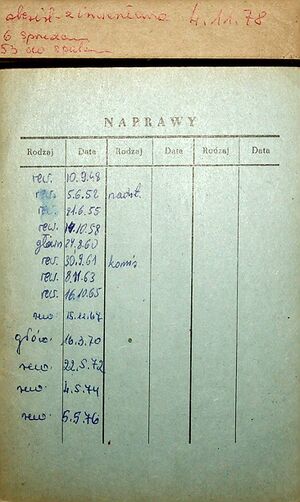 z inwentarza 4.11.78
6 sprzedan
53 do spalen
NAPRAWY
Rodzaj Data Rodzaj Data Rodzaj Data
rew. 10.9.48
rew. 5.6.52
rew. 21.6.55
rew. 14.10.58
główn 24.8.60
rew. 30.9.61 komis
rew. 8.11.63
rew. 16.10.65
rew. 15.11.67
główn. 16.3.70
rew. 22.5.72
rew. 4.5.74
rew. 5.5.76